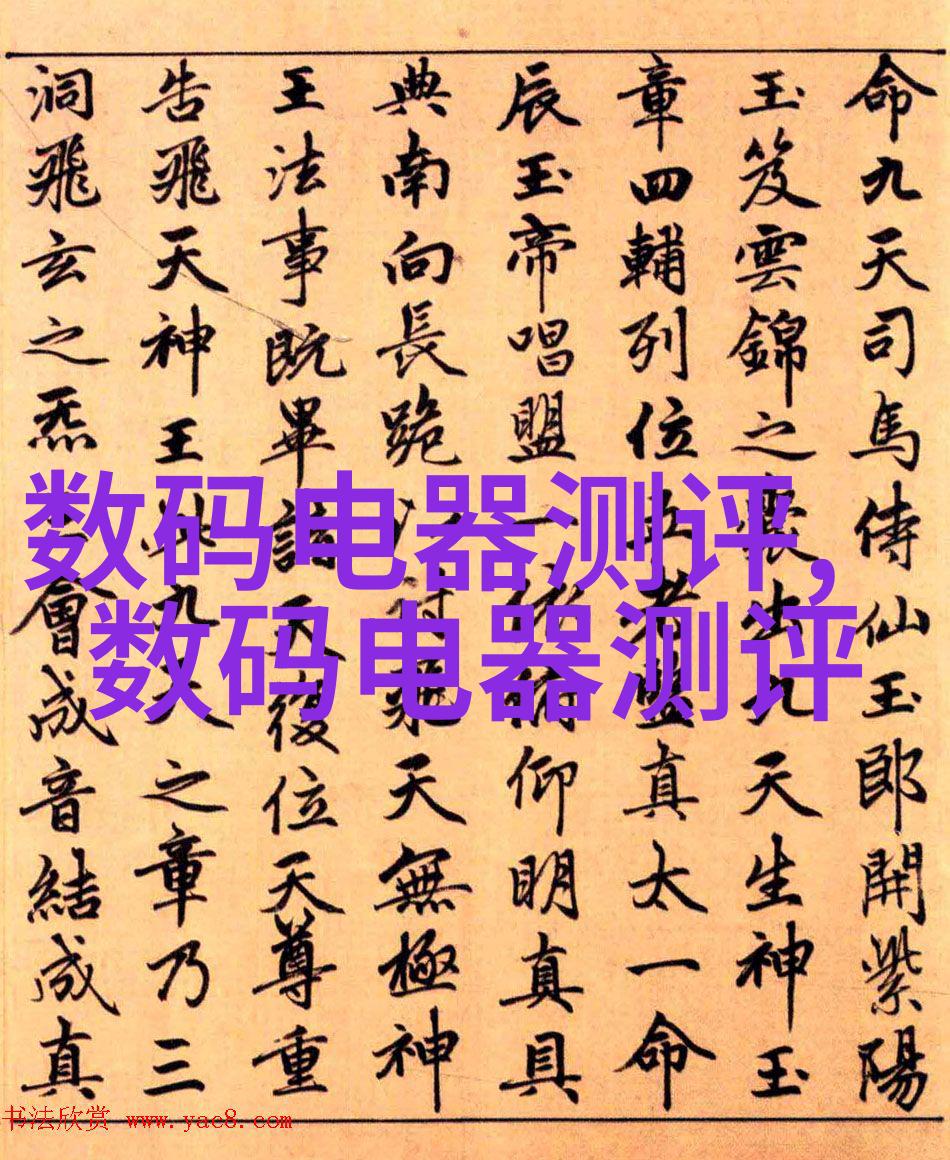 命九天司馬侍仙玉郎開紫陽
玉笈雲錦之囊出九天生神玉
章四輔列位五老監真太一命
辰玉帝唱盟一依俯仰明真具
典南向長跪以付飛天無極神
王法事既畢諸天復位天尊重
告飛天神王此九天之章乃三
洞飛玄之炁會成音結成真
数码电器测评,
数码电器测评
书法欣赏 www.yac8.com